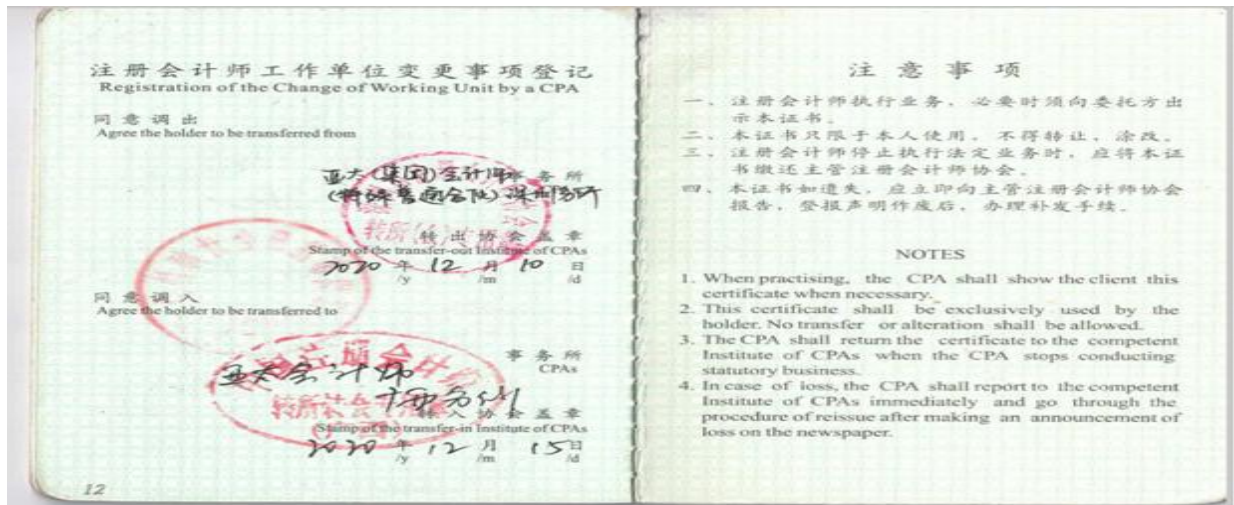 注册会计师工作单位变更事项登记
Registration of the Change of Working Unit by a CPA
同意调出
Agree the holder to be transferred from
亚太(集团)会计师事务所
(特殊普通合伙)深圳分所
转出协会盖章
Stamp of the transfer-out Institute of CPAs
2020 年 12 月 10 日
/y /m /d
同意调入
Agree the holder to be transferred to
事务所
CPAs
亚太会计师
转入协会盖章
Stamp of the transfer-in Institute of CPAs
2020 年 12 月 15 日
/y /m /d
12
注意事项
一、注册会计师执行业务，必要时须向委托方出
示本证书。
二、本证书只限于本人使用，不得转让、涂改。
三、注册会计师停止执行法定业务时，应将本证
书缴还主管注册会计师协会。
四、本证书如遗失，应立即向主管注册会计师协会
报告，登报声明作废后，办理补发手续。
NOTES
1. When practising, the CPA shall show the client this
certificate when necessary.
2. This certificate shall be exclusively used by the
holder. No transfer or alteration shall be allowed.
3. The CPA shall return the certificate to the competent
Institute of CPAs when the CPA stops conducting
statutory business.
4. In case of loss, the CPA shall report to the competent
Institute of CPAs immediately and go through the
procedure of reissue after making an announcement of
loss on the newspaper.